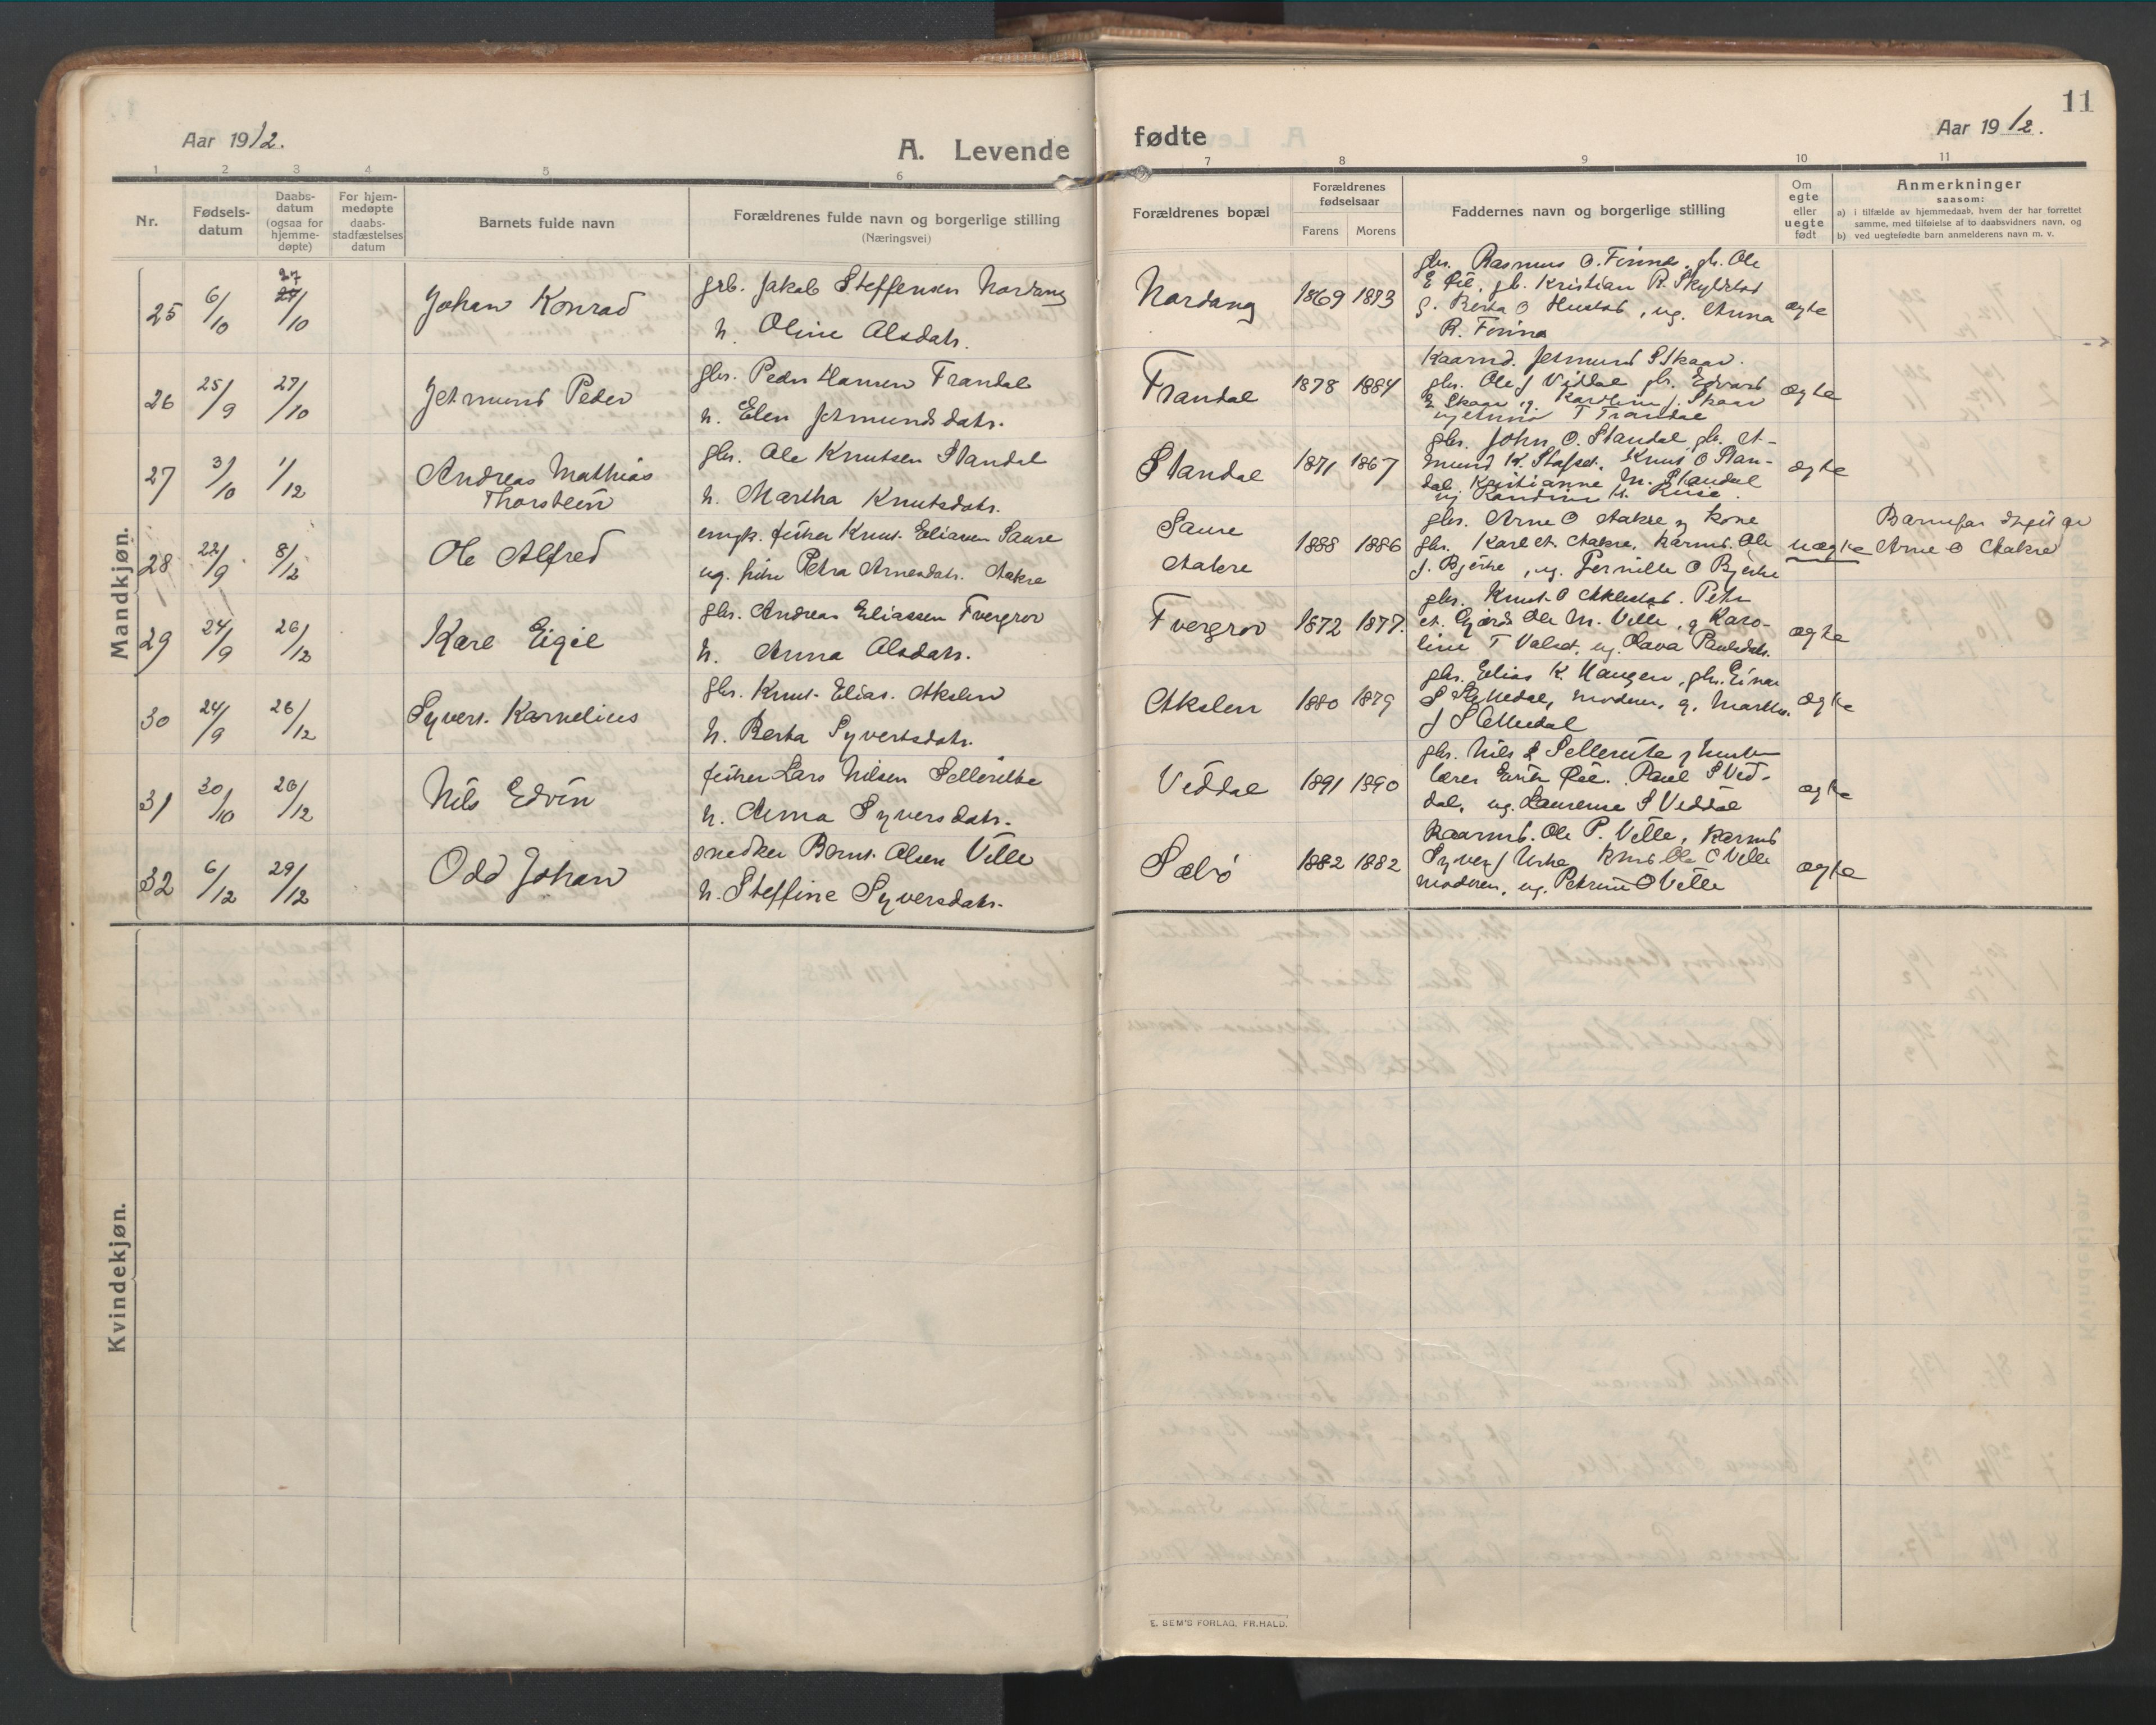 Aar 1912.
A. Levende
1 2 3 4 5 6
Nr.
Fødsels-
datum
Daabs-
datum
(ogsaa for
hjemme-
døpte)
For hjem-
medøpte
daabs-
stadfæstelses
datum
Barnets fulde navn
Forældrenes fulde navn og borgerlige stilling
(Næringsvei)
Mandkjøn.
25 6/10 27/10 Johan Konrad
grb. Jakob Steffensen Nordang
h. Oline Olsdatr.
26 25/9 27/10 Jetmund Peder
gbr. Peder Hansen Trandal
h. Elen Jetmundsdatr.
27 3/10 1/12 Andreas Mathias
Thorstein
gbr. Ole Knutsen Standal
h. Martha Knutsdatr.
28 22/9 8/12 Ole Alfred
ungk. fisker Knut Eliasen Saure
ug. Petra Arnesdatr. Aakre
29 24/9 26/12 Karl Eigil
gbr. Andreas Eliassen Tvergrov
h. Anna Olsdatr.
30 24/9 26/12 Syvert Karnelius
gbr. Knut Elias. Akslen
h. Berta Syvertsdatr.
31 30/10 26/12 Nils Edvin
fisker Lars Nilsen Sellereite
h. Anna Syversdatr.
32 6/12 29/12 Odd Johan
snedker Bernt Olsen Velle
h. Steffine Syversdatr.
Kvindekjøn.
11
fødte
Aar 1912.
7 8 9 10 11
Forældrenes bopæl
Forældrenes
fødselsaar
Farens Morens
Faddernes navn og borgerlige stilling
Om
egte
eller
uegte
født
Anmerkninger
saasom:
a) i tilfælde av hjemmedaab, hvem der har forrettet
samme, med tilføielse af to daabsvidners navn, og
b) ved uegtefødte barn anmelderens navn m. v.
Nordang 1869 1873
gbr. Rasmus O. Finnes, gb. Ole
E Øie, gb. Kristian R. Skylstad
g. Berta O Hustad, ug. Anna
R. Finnes
ægte
Trandal 1878 1884
Kaarmd. Jetmund S Skaar.
gbr. Ole J Viddal gbr. Edvard
E Skaar, g. Karoline J. Skaar
ug Anna T Trandal
ægte
Standal 1871 1867
gbr. John O. Standal gb. A-
mund K. Stafset. Knut O Stan-
dal, Kristianne M. Standal
ægte
Saure
Aakre 1888 1886
gbr. Arne O Aakre og kone
gbr. Karl A. Aakre, Karmd. Ole
J. Bjerke, ug. Pernille O Bjerke
uægte
Barnefar opgit av
Arne O Aakre
Tvergrov 1872 1877.
gbr. Knut O Aklestad. Petr
A. Gjerde Ole M. Velle, g Karo-
line T Valset, ug. Olava Paulsdatr.
ægte
Akslen 1880 1879
gbr. Elias K. Haugen, gbr. Einar
S Slettedal, moderen, g. Martha
J Slettedal
ægte
Viddal 1891 1890
gbr. Nils L Sellereite og hustru
lærer Eirik Øie. Paul S Vid-
dal, ug. Laurense S Viddal
ægte
Sæbø 1882 1882
Kaarmd. Ole P. Velle, Karmd
Syver J Urke, Knut Ole O Velle
moderen, ug. Petrine O Velle
ægte
E. SEM'S FORLAG, FR.HALD.